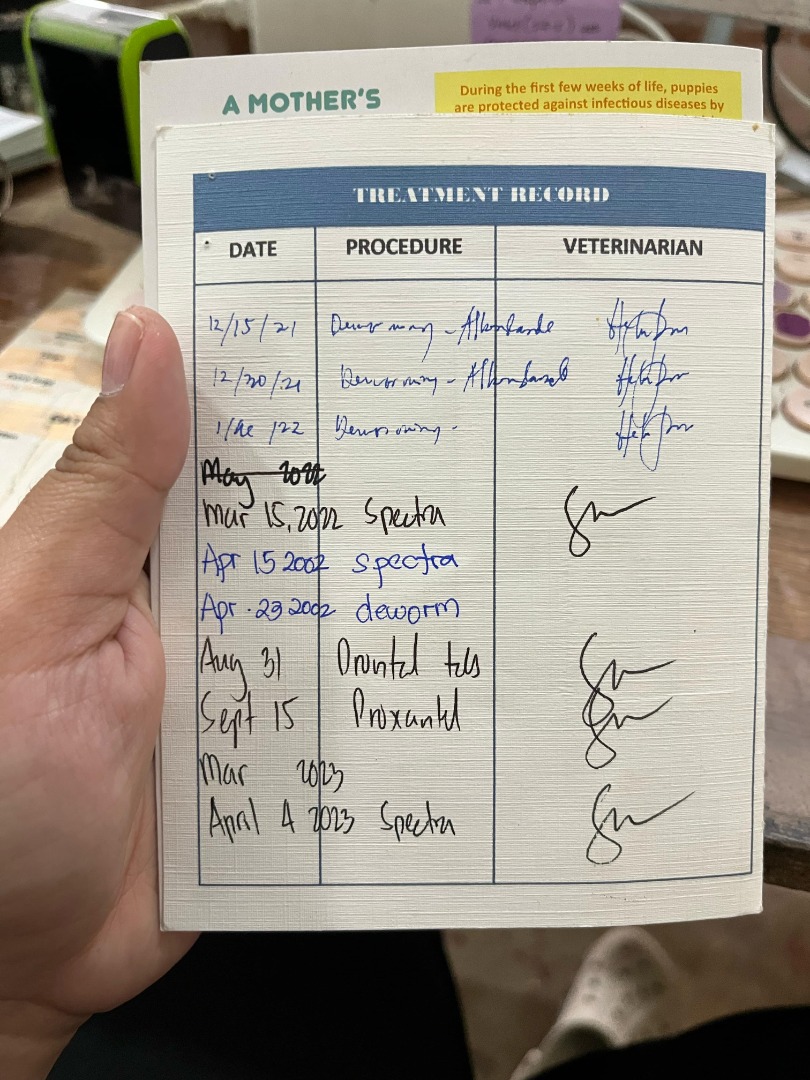 A MOTHER'S
During the first few weeks of life, puppies
are protected against infectious diseases by
TREATMENT RECORD
DATE PROCEDURE VETERINARIAN
12/15/21 Deworming -
12/30/21 Deworming -
/22 Deworming -
May 2022
Mar 15, 2022 Spectra
Apr 15 2002 spectra
Apr. 29 2002 deworm
Aug 31 Drontal tabs
Sept 15 Proxantel
Mar 2023
April 4 2023 Spectra